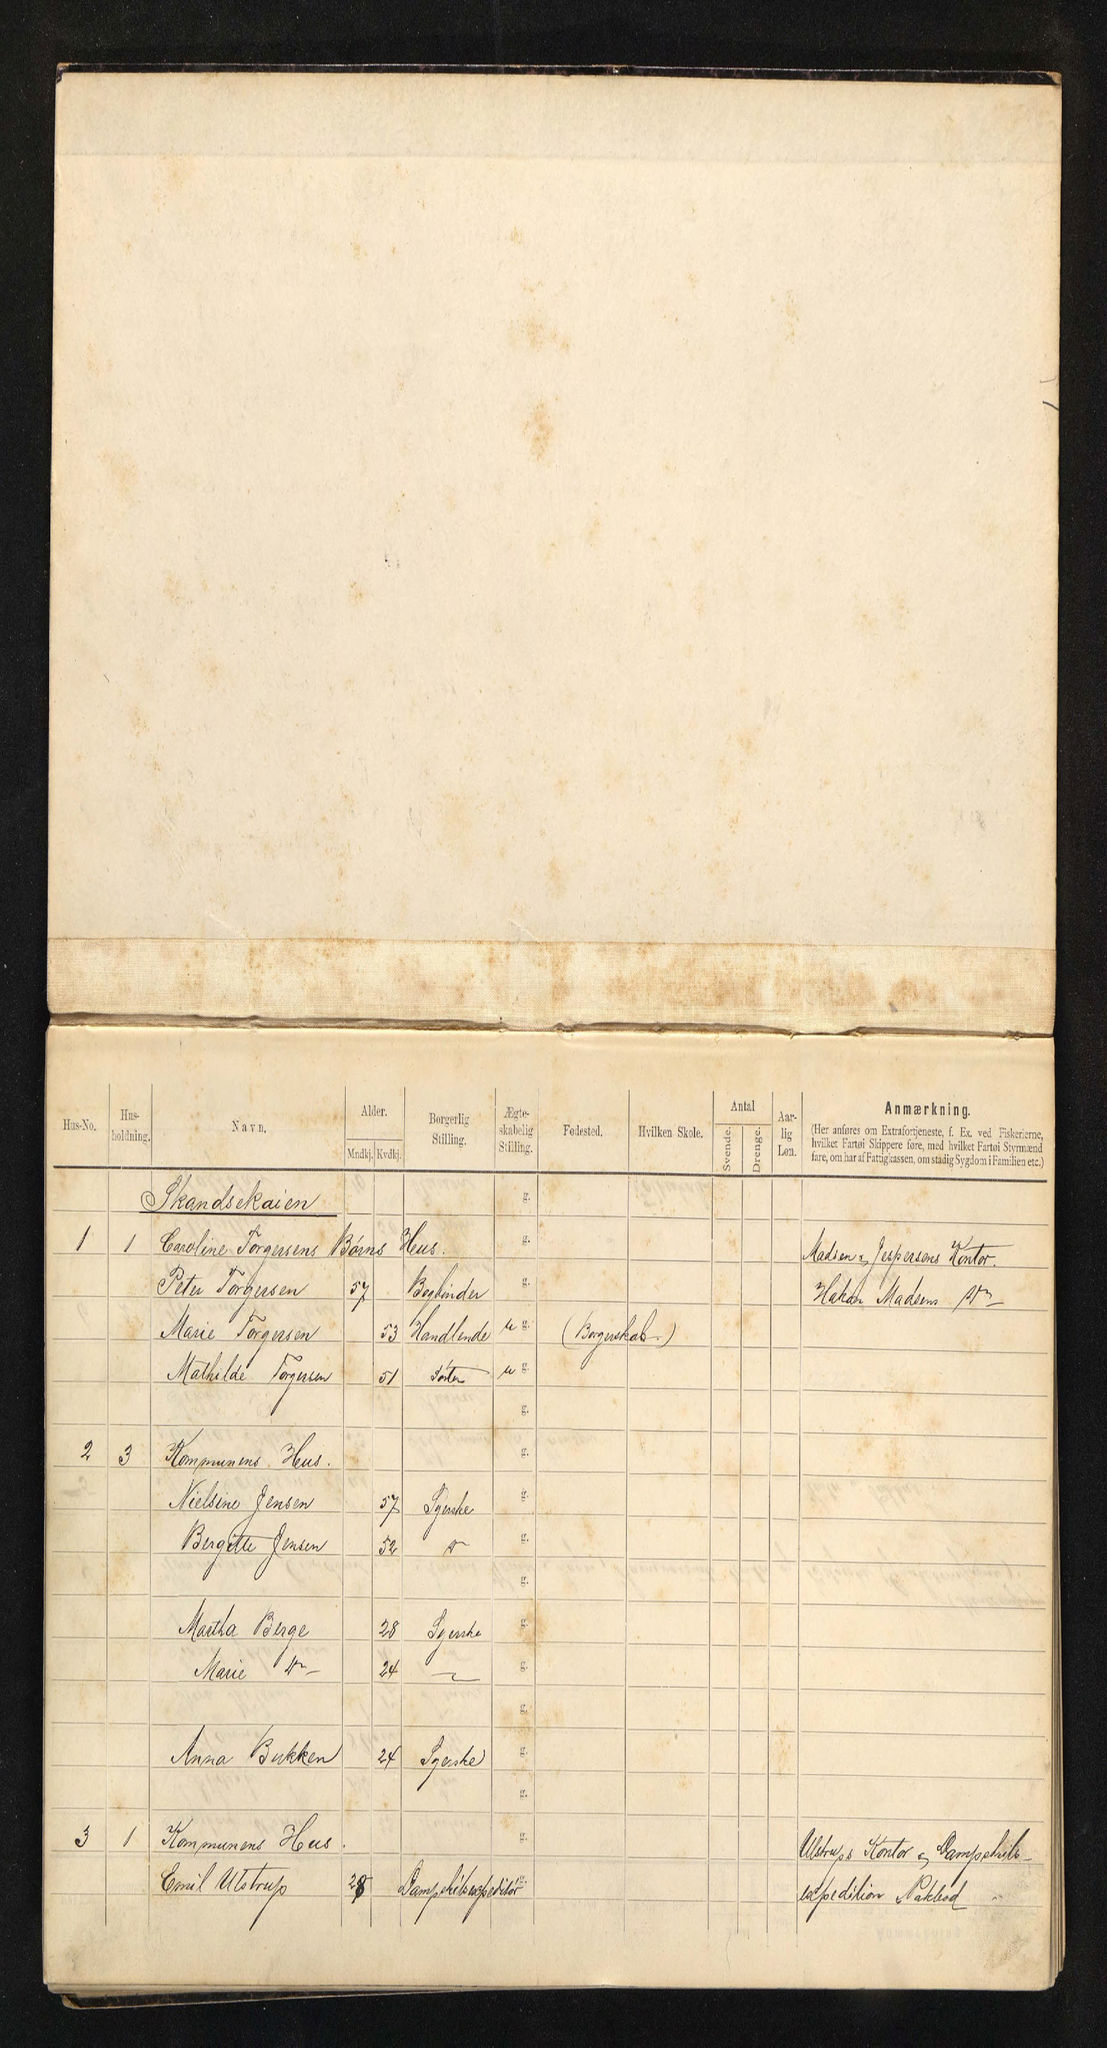 Hus-No. Hus-holdning. Navn. Alder. Mndkj. Kvdkj. Borgerlig Stilling. Ægte-skabelig Stilling. Fødested. Hvilken Skole. Antal Svende. Drenge. Aar-lig Løn. Anmærkning.
(Her anføres om Extrafortjeneste, f. Ex. ved Fiskerierne,
hvilket Fartøi Skippere føre, med hvilket Fartøi Styrmænd
fare, om har af Fattigkassen, om stadig Sygdom i Familien etc.)
Skandsekaien g.
1 1 Caroline Torgersens Børns Hus. g. Madsen & Jespersens Kontor.
Peter Torgersen 57 Bogbinder g. Hakon Madsens do
Marie Torgersen 53 Handlende u g. (Borgerskab)
Mathilde Torgersen 51 Søster u g.
g.
2 3 Kommunens Hus. g.
Nielsine Jensen 57 Syerske g.
Bergitte Jensen 52 do g.
g.
Martha Berge 28 Syerske g.
Marie do 24 g.
g.
Anna Bukken 24 Syerske g.
g.
3 1 Kommunens Hus. g. Ulstrups Kontor & Dampskibs-
Emil Ulstrup 28 Dampskibsexpeditør g. expedition Pakbod